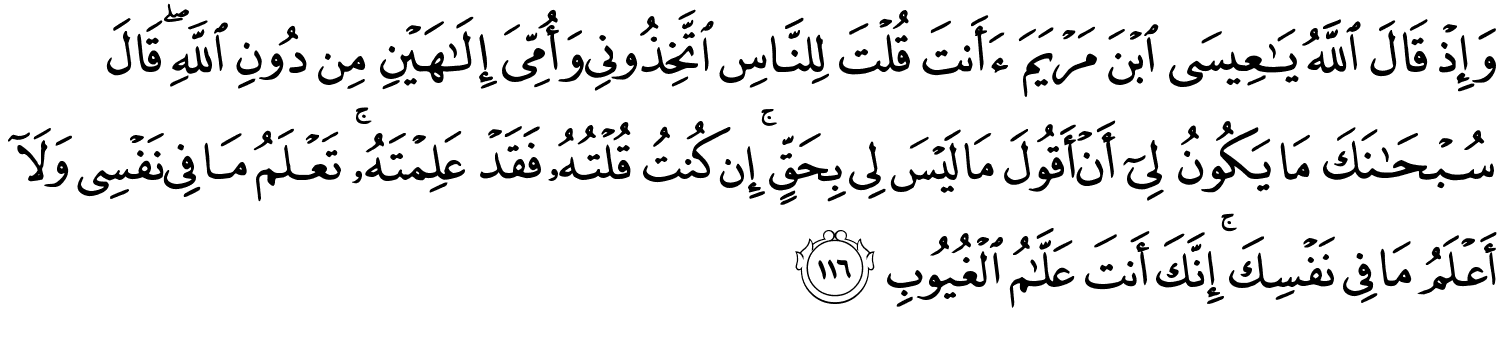 وَإِذۡ قَالَ ٱللَّهُ يَٰعِيسَى ٱبۡنَ مَرۡيَمَ ءَأَنتَ قُلۡتَ لِلنَّاسِ ٱتَّخِذُونِي وَأُمِّيَ إِلَٰهَيۡنِ مِن دُونِ ٱللَّهِۖ قَالَ
سُبۡحَٰنَكَ مَا يَكُونُ لِيٓ أَنۡ أَقُولَ مَا لَيۡسَ لِي بِحَقٍّۚ إِن كُنتُ قُلۡتُهُۥ فَقَدۡ عَلِمۡتَهُۥۚ تَعۡلَمُ مَا فِي نَفۡسِي وَلَآ
أَعۡلَمُ مَا فِي نَفۡسِكَۚ إِنَّكَ أَنتَ عَلَّٰمُ ٱلۡغُيُوبِ ١١٦